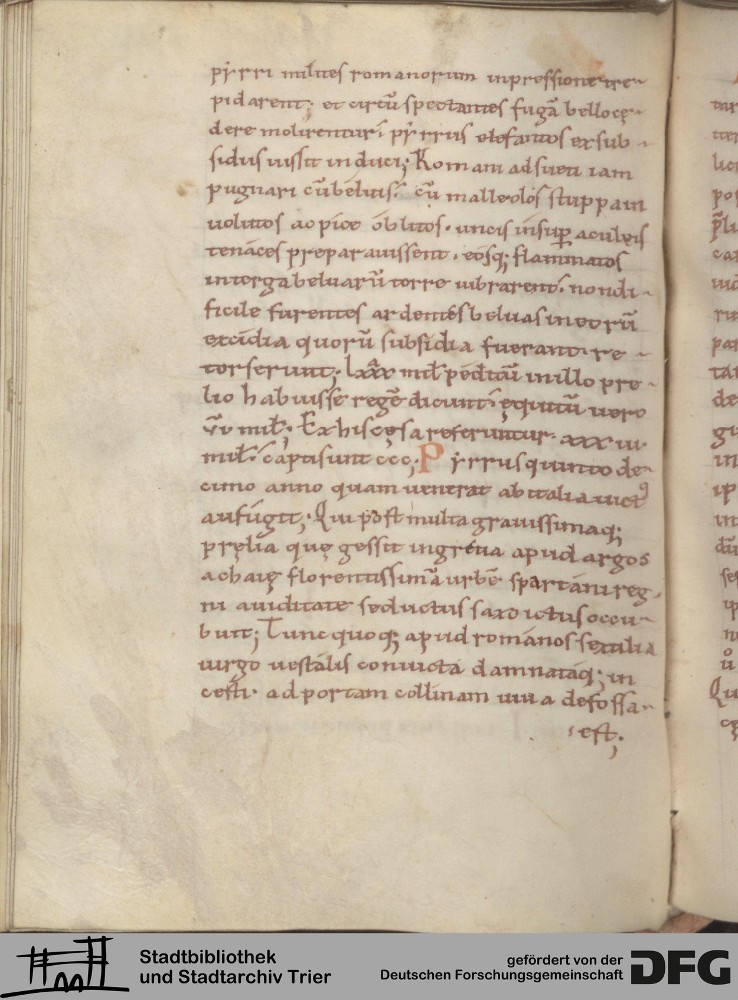 pẏrri milites romanorum inpressione tre-
pidarent; et circũ spectantes fugã bello cę-
dere molirentur; pẏrrus elefantos ex sub-
sidiis iussit induci; Romani adsueti iam
pugnari cũ beluis; cũ malleolos stuppa in
uolutos ac pice oblitos. uncis insup aculeis
tenaces preparauissent. eosq; flammatos
in terga beluarũ torre uibrarent. non di-
ficile furentes ardentes beluas in eorũ
excidia quorũ subsidia fuerant. re-
torserunt; lxxx mil peditũ in illo pre-
lio habuisse regẽ dicunt. equitũ uero
vii mil; Ex his cęsa referuntur. xxxiii.
mil. capti sunt ccc; Pẏrrus quinto de-
cimo anno quam uenerat ab italia uict9
aufugit; Qui post multa grauissimaq;
prelia quę gessit in gretia apud argos
achaię florentissimã urbẽ spartani reg-
ni auiditate seductus saxo ictus occu-
buit; Tunc quoq; apud romanos sextilia
uirgo uestalis conuicta damnataq; in
cesti. ad portam collinam uiua defossa-
est;
Stadtbibliothek
und Stadtarchiv Trier
gefördert von der
Deutschen Forschungsgemeinschaft
DFG